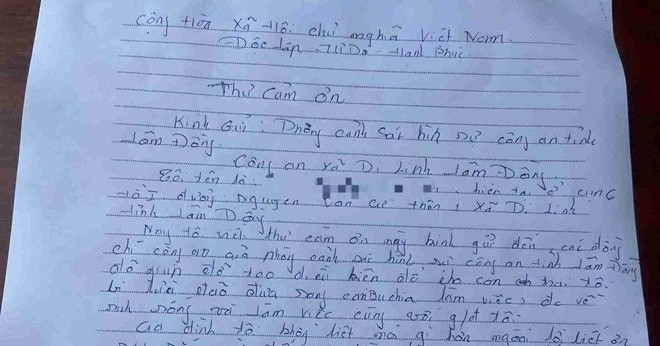 Cộng Hòa Xã Hội chủ nghĩa Việt Nam.
Độc lập Tự Do Hạnh Phúc
Thư Cảm ơn
Kính Gửi: Phòng cảnh sát hình sự công an tỉnh
Lâm Đồng.
Công an xã Di Linh Lâm Đồng
Tôi tên là hiện tại ở cụm 6
tổ I đường nguyễn văn cừ thôn 1 xã Di Linh
tỉnh Lâm Đồng
Nay tô viết thư cảm ơn này kính gửi đến các đồng
chí công an của phòng cảnh sác hình sự công an tỉnh Lâm Đồng
đã giúp đỡ tạo điều kiện để cho con trai tôi.
bị lừa đảo đưa sang cambuchia làm việc, đc về
sinh sống và làm việc cùng với gđ tôi.
Gia đình tôi không biết nói gì hơn ngoài lời biết ơn